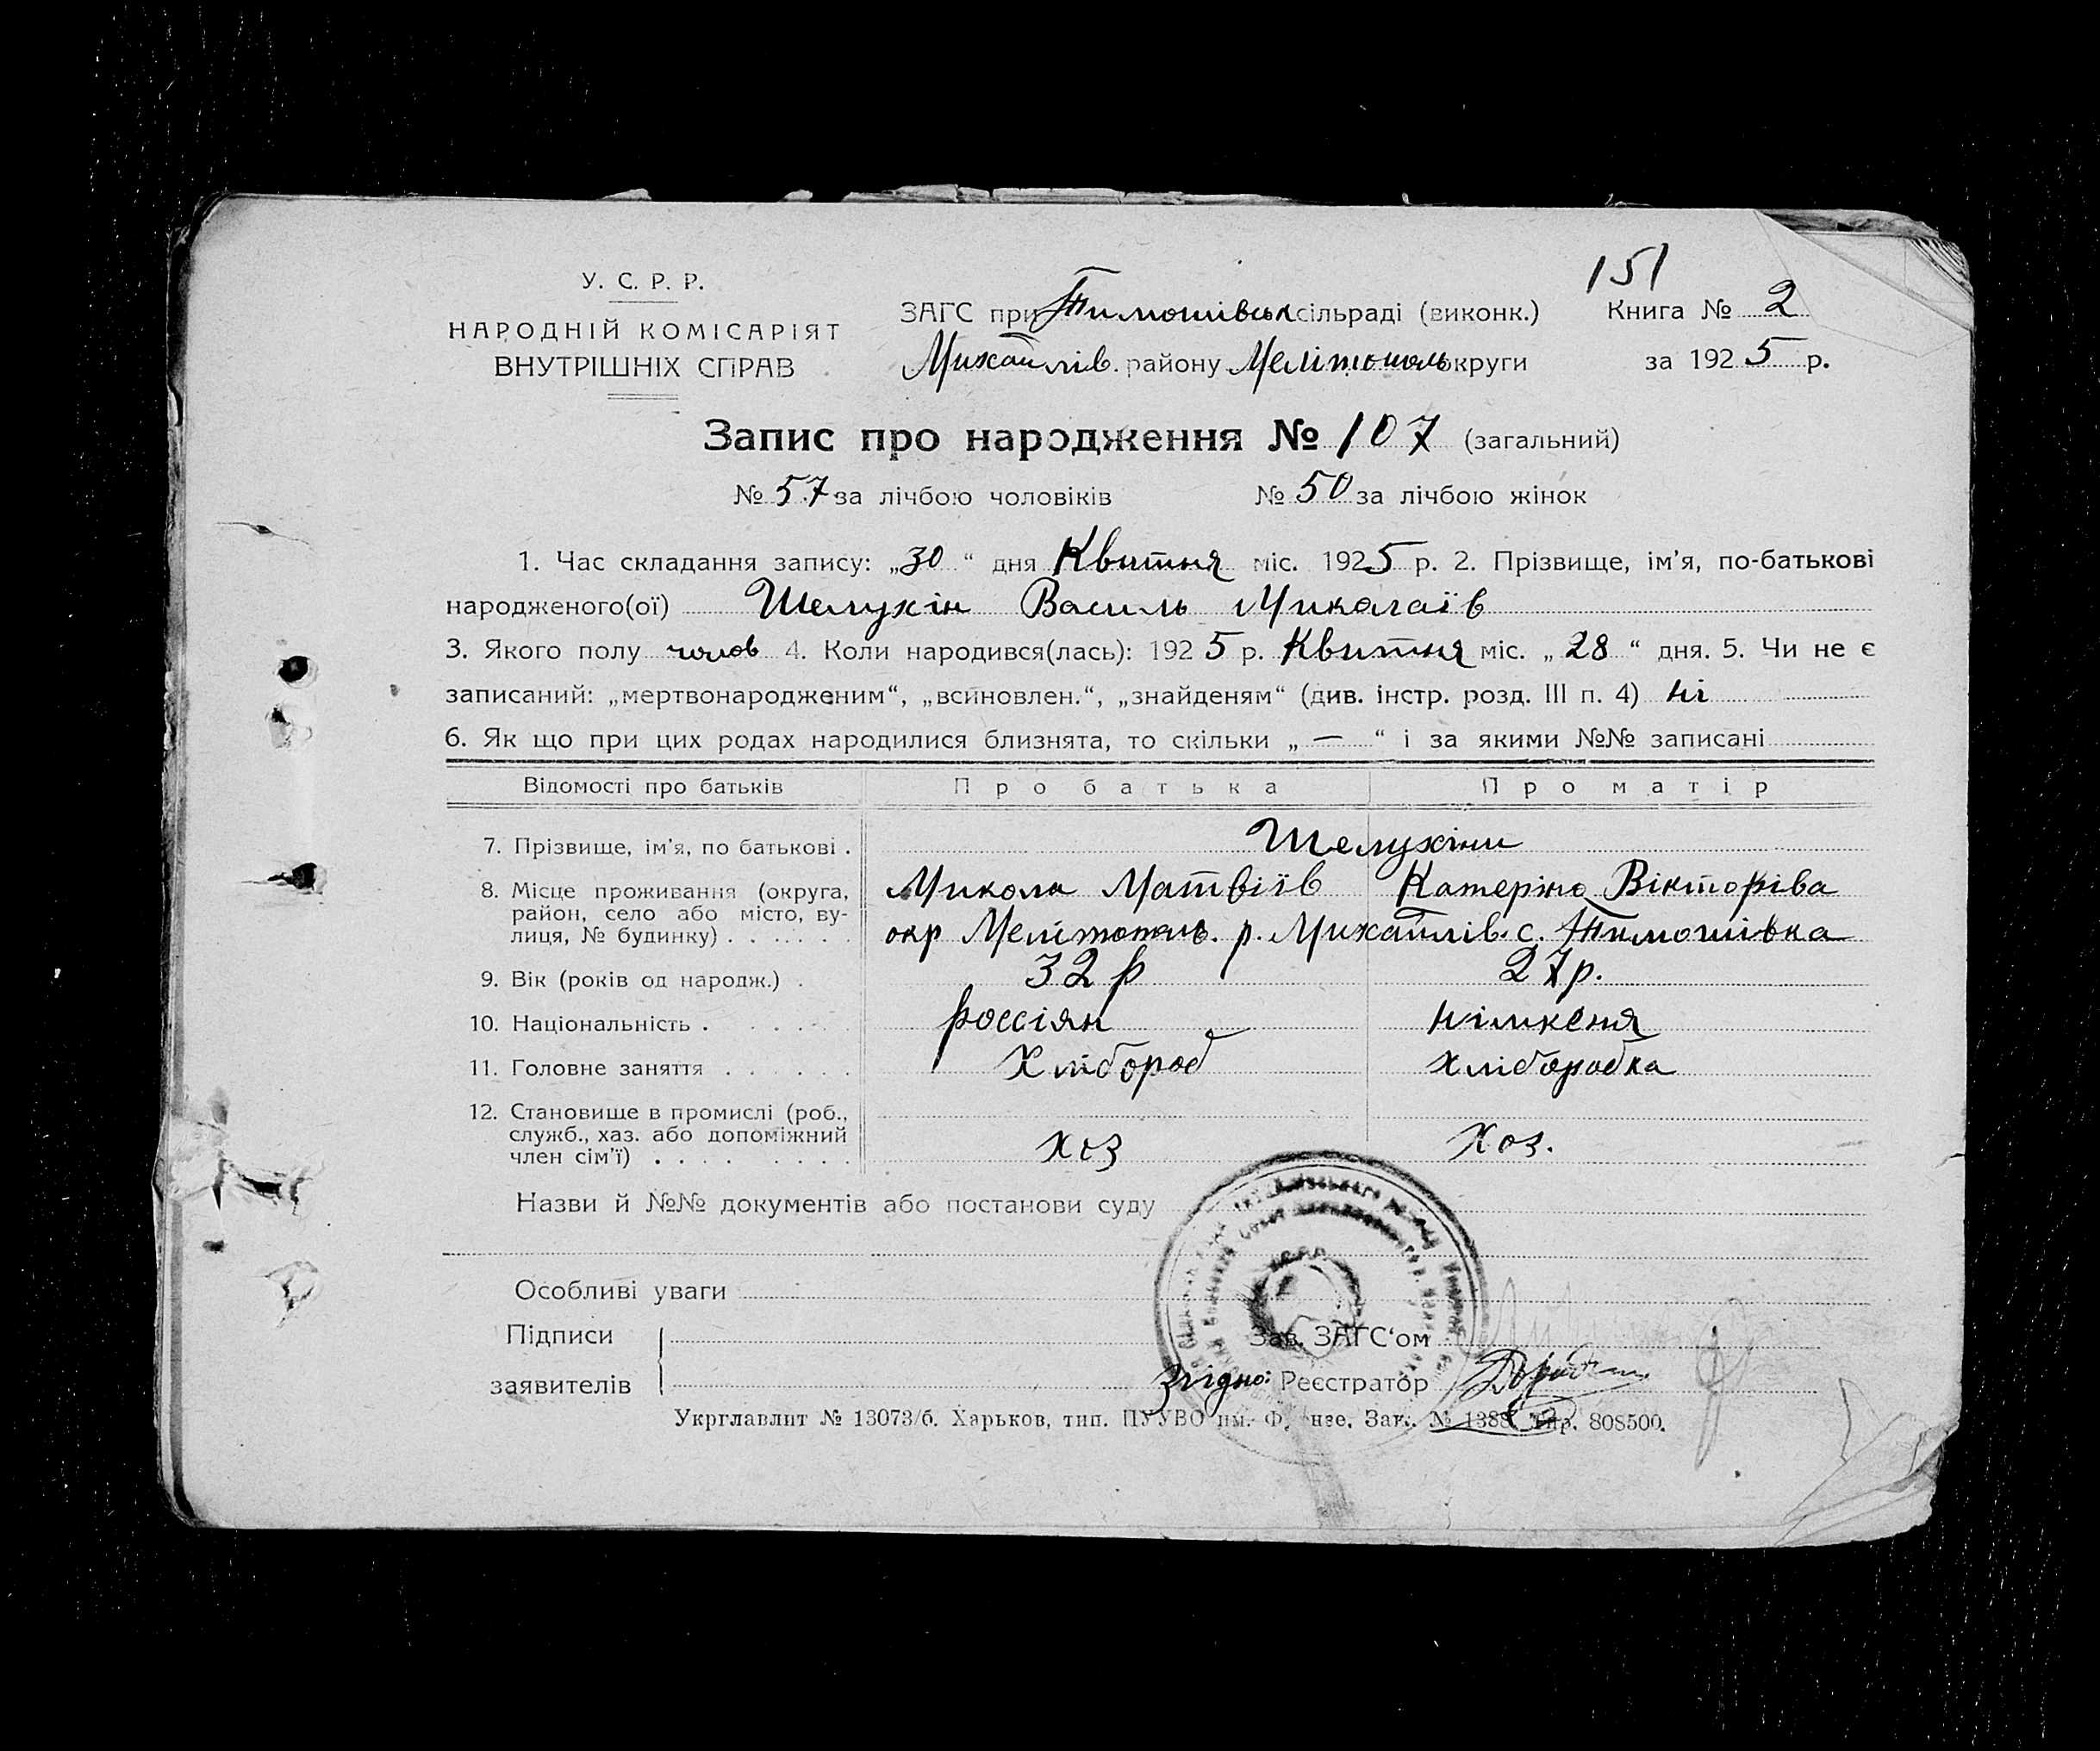 151
У. С. Р. Р.
НАРОДНІЙ КОМІСАРІЯТ
ВНУТРІШНІХ СПРАВ
ЗАГС при Тимошівськ сільраді (виконк.) Книга № 2
Михайлів. району Мелітополь округи за 1925 р.
Запис про народження № 107 (загальний)
№ 57 за лічбою чоловіків № 50 за лічбою жінок
1. Час складання запису: „30“ дня Квітня міс. 1925 р. 2. Прізвище, ім'я, по-батькові
народженого(ої) Шелухін Василь Миколаїв
3. Якого полу чолов 4. Коли народився(лась): 1925 р. Квітня міс. „28“ дня. 5. Чи не є
записаний: „мертвонародженим“, „всиновлен.“, „знайденям“ (див. інстр. розд. III п. 4) ні
6. Як що при цих родах народилися близнята, то скільки „—“ і за якими №№ записані
Відомості про батьків Про батька Про матір
7. Прізвище, ім'я, по батькові . Шелухіни
8. Місце проживання (округа, Микола Матвіїв Катеріна Вікторіва
район, село або місто, ву-
лиця, № будинку) . . . . . . окр Мелітополь. р. Михайлів. с. Тимошівка
9. Вік (років од народж.) . 32 р 27 р.
10. Національність . россіян німкеня
11. Головне заняття . . . . . . Хлібороб хліборобка
12. Становище в промислі (роб.,
служб., хаз. або допоміжний
член сім'ї) . . . . хоз хоз.
Назви й №№ документів або постанови суду
Особливі уваги
Підписи Зав. ЗАГС‘ом
заявителів Згідно: Реєстратор
Укрглавлит № 13073/б. Харьков, тип. ПУУВО им. Фрунзе. Зак. № 1388. Тир. 808500.